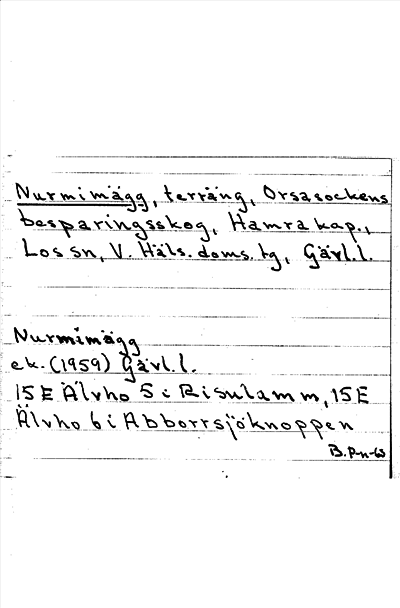 Nurmimägg, terräng, Orsasockens
besparingsskog, Hamra kap.,
Los sn, V. Häls. doms. tg, Gävl.l.
Nurmimägg
ek. (1959) Gävl.l.
15E Älvho 5 i Risulamm, 15E
Älvho 6 i Abborrsjöknoppen
B.Pn-W